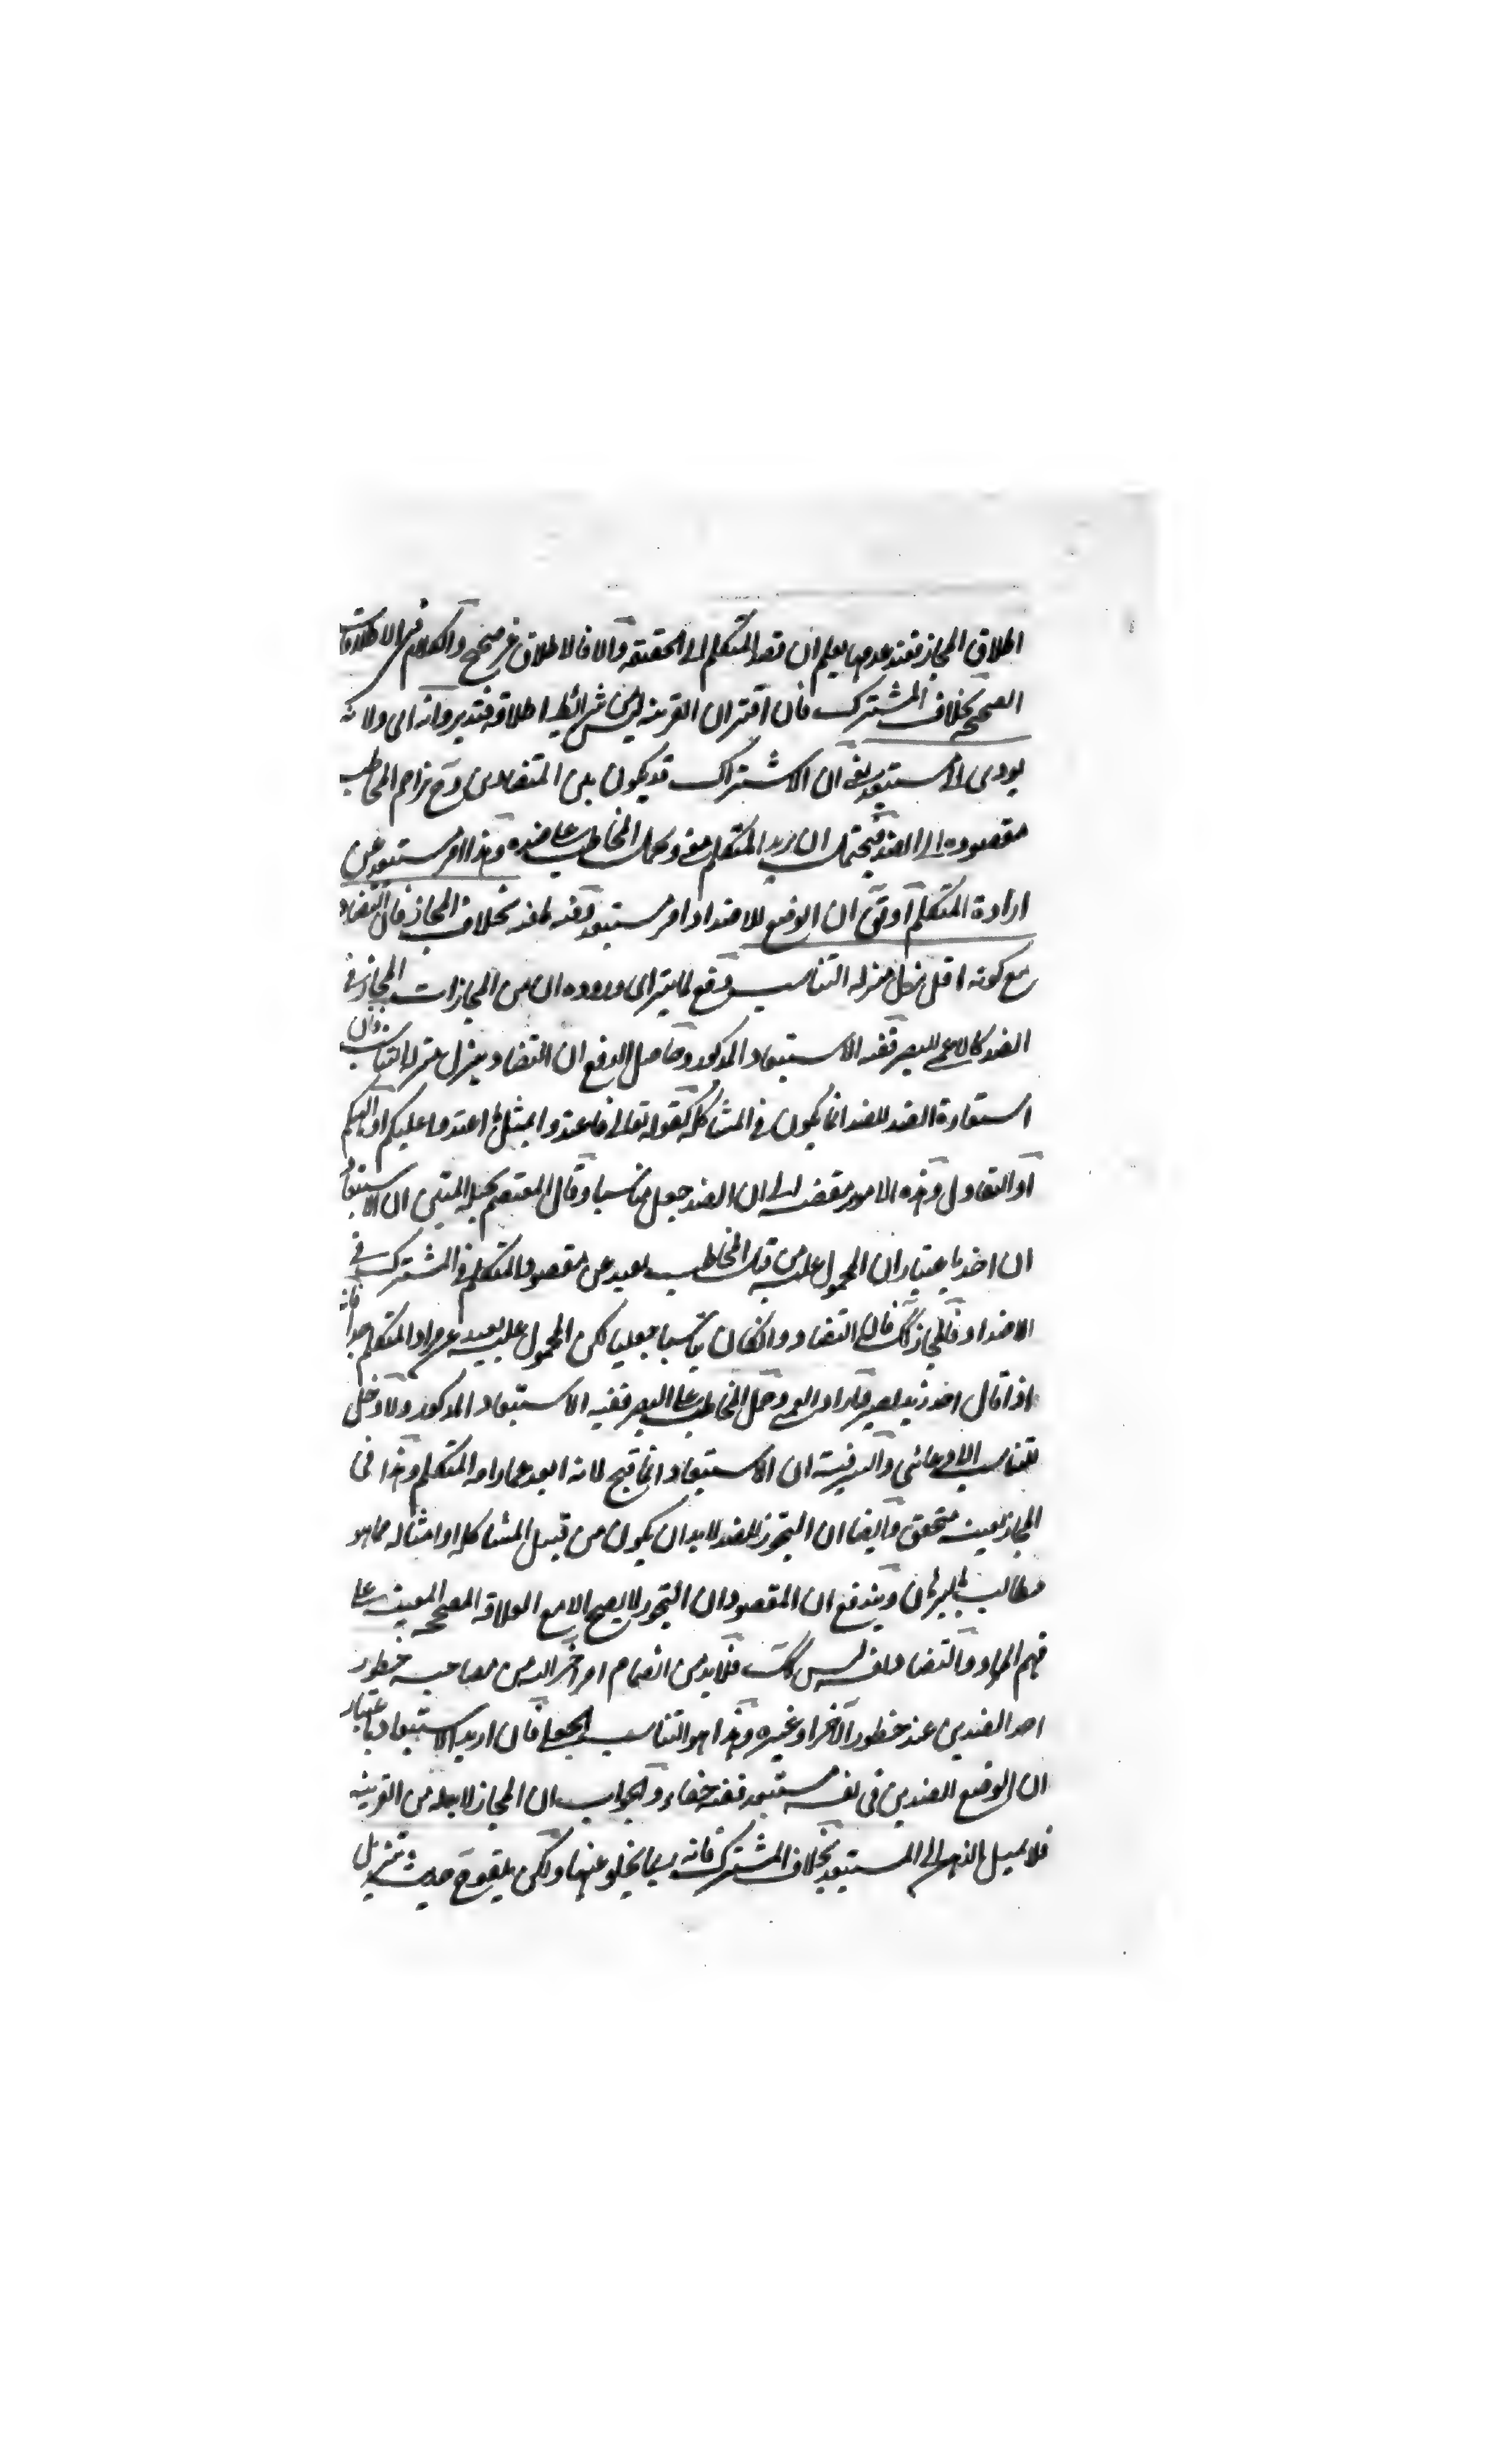 اطلاق المجاز فعند عدمها يعلم ان قصد المتكلم الى الحقيقة والا فالاطلاق غير صحيح والكلام فى الاطلاقات
الصحيحة بخلاف المشترك فان اقتران القرينة ليس من شرائط اطلاقه فتدبر وانه اى ولانه
يودى الى مستبعد يعنى ان الاشتراك قد يكون بين المتضادين وح يزاحم المخاطب
مقصوده الى الضد فيحتمل ان يريد المتكلم معنى وحمل المخاطب على ضده وهذا امر مستبعد عن
ارادة المتكلم او نقول ان الوضع للاضداد امر مستبعد فى نفسه بخلاف المجاز فان التضاد
مع كونه اقل نزل منزلة التناسب دفع لما يترااى وروده ان من المجازات المجاز فى
الضد كالاعمى للبصير ففيه الاستبعاد المذكور وحاصل الدفع ان التضاد ينزل منزلة التناسب فان
استعارة الضد للضد انما يكون فى المشاكلة كقوله تعالى فاعتدوا بمثل ما اعتدى عليكم او التهكم
او التفاول وهذه الامور مفضية الى ان الضد جعل مناسبا وقال المعتصم بحبله المتين ان الاستبعاد
ان اخذ باعتبار ان المحمول عليه من قبل المخاطب بعيد عن مقصود المتكلم فى المشترك فى
الاضداد فالمجاز كك فان التضاد وان كان تناسبا جعليا لكن المحمول عليه بعيد عن مراد المتكلم جدا فانه
اذا قال احد زيد بصير واراد العمى وحمل المخاطب على البصر ففيه الاستبعاد المذكور ولا دخل
للتناسب الادعائى والسر فيه ان الاستبعاد انما قبح لانه ابعد عما رامه المتكلم وهذا فى
المجاز بعينه متحقق وايضا ان التجوز للضد لا بد ان يكون من قبيل المشاكلة او امثاله مما هو
مطالب بالبرهان ويندفع ان المقصود ان التجوز لا يصح الا مع العلاقة المصححة المعينة على
فهم المراد والتضاد بنفسه ليس كك فلا بد من انضمام امر آخر اليه من مصاحبة خطور
احد الضدين عند خطور الآخر او غيره وهذا هو التناسب الجعلى فان اريد الاستبعاد باعتبار
ان الوضع للضدين فى نفسه مستبعد ففيه خفاء والجواب ان المجاز لا بد له من القرينة
فلا يميل الذهن الى المستبعد بخلاف المشترك فانه ربما يخلو عنها ولكن يلغو ح حديث تنزيل